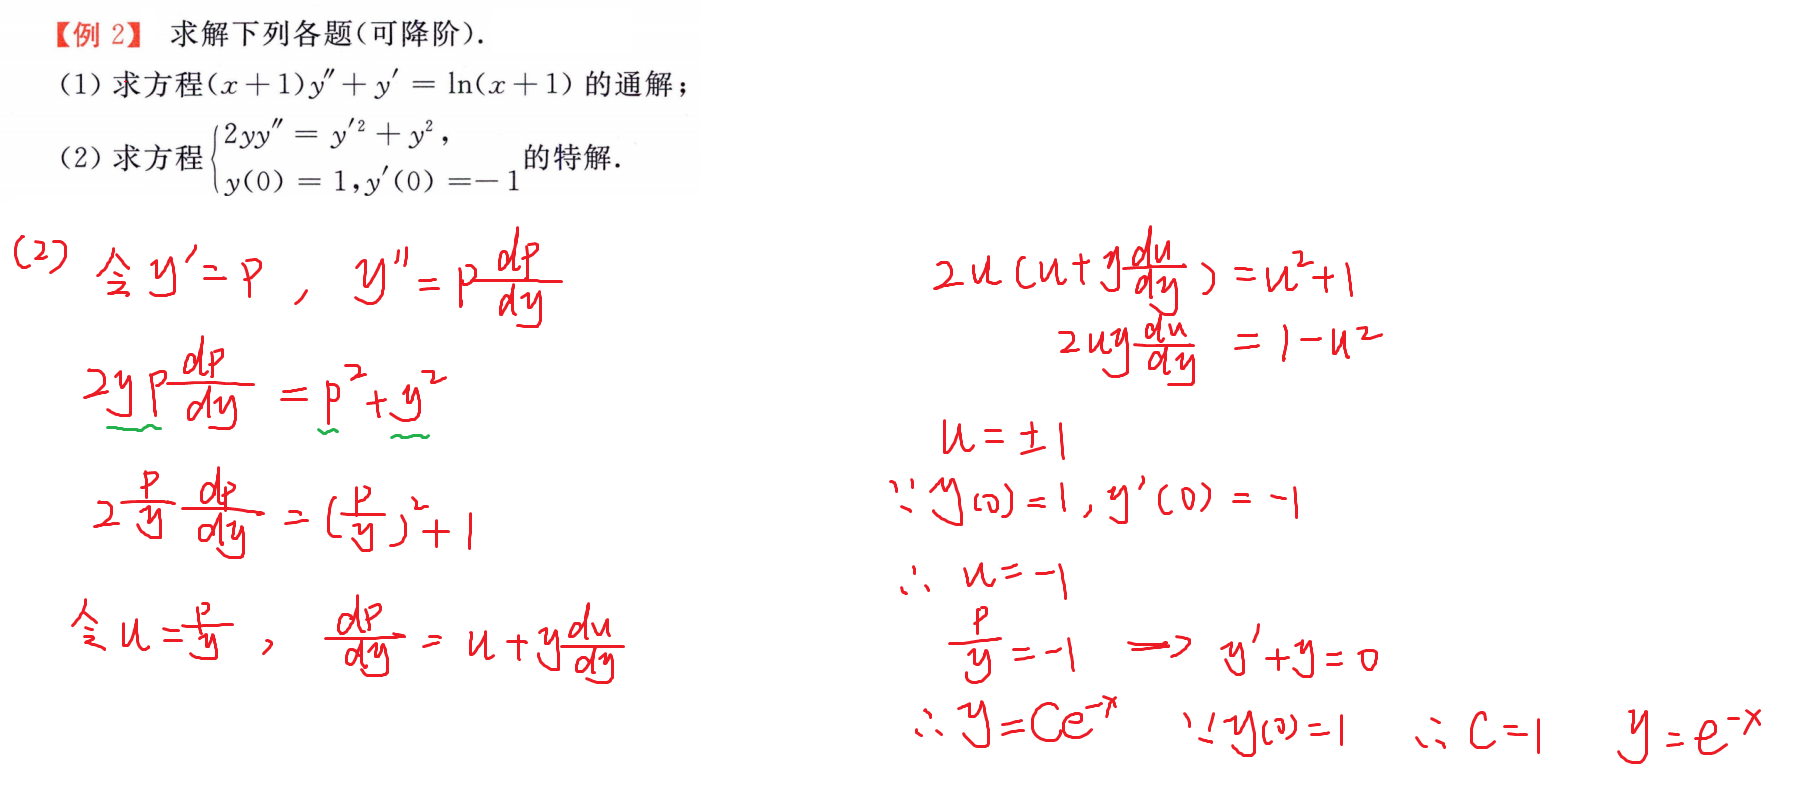 【例 2】 求解下列各题(可降阶).
(1) 求方程(x+1)y″+y′=ln(x+1) 的通解;
(2) 求方程{2yy″=y′²+y², y(0)=1,y′(0)=-1 的特解.
(2) 令 y′=p , y″=p dp/dy
2yp dp/dy = p²+y²
2 p/y dp/dy = (p/y)²+1
令 u=p/y , dp/dy = u+y du/dy
2u(u+y du/dy)=u²+1
2uy du/dy = 1-u²
u=±1
∵ y(0)=1, y′(0)=-1
∴ u=-1
p/y=-1 → y′+y=0
∴ y=Ce^{-x} ∵ y(0)=1 ∴ C=1 y=e^{-x}